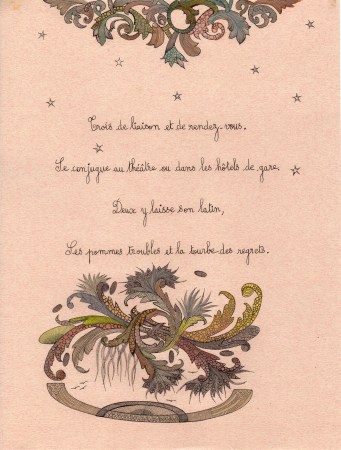 Trois de liaison et de rendez-vous.
Se conjugue au théâtre ou dans les hôtels de gare.
Deux y laisse son latin,
Les pommes troubles et la tourbe des regrets.